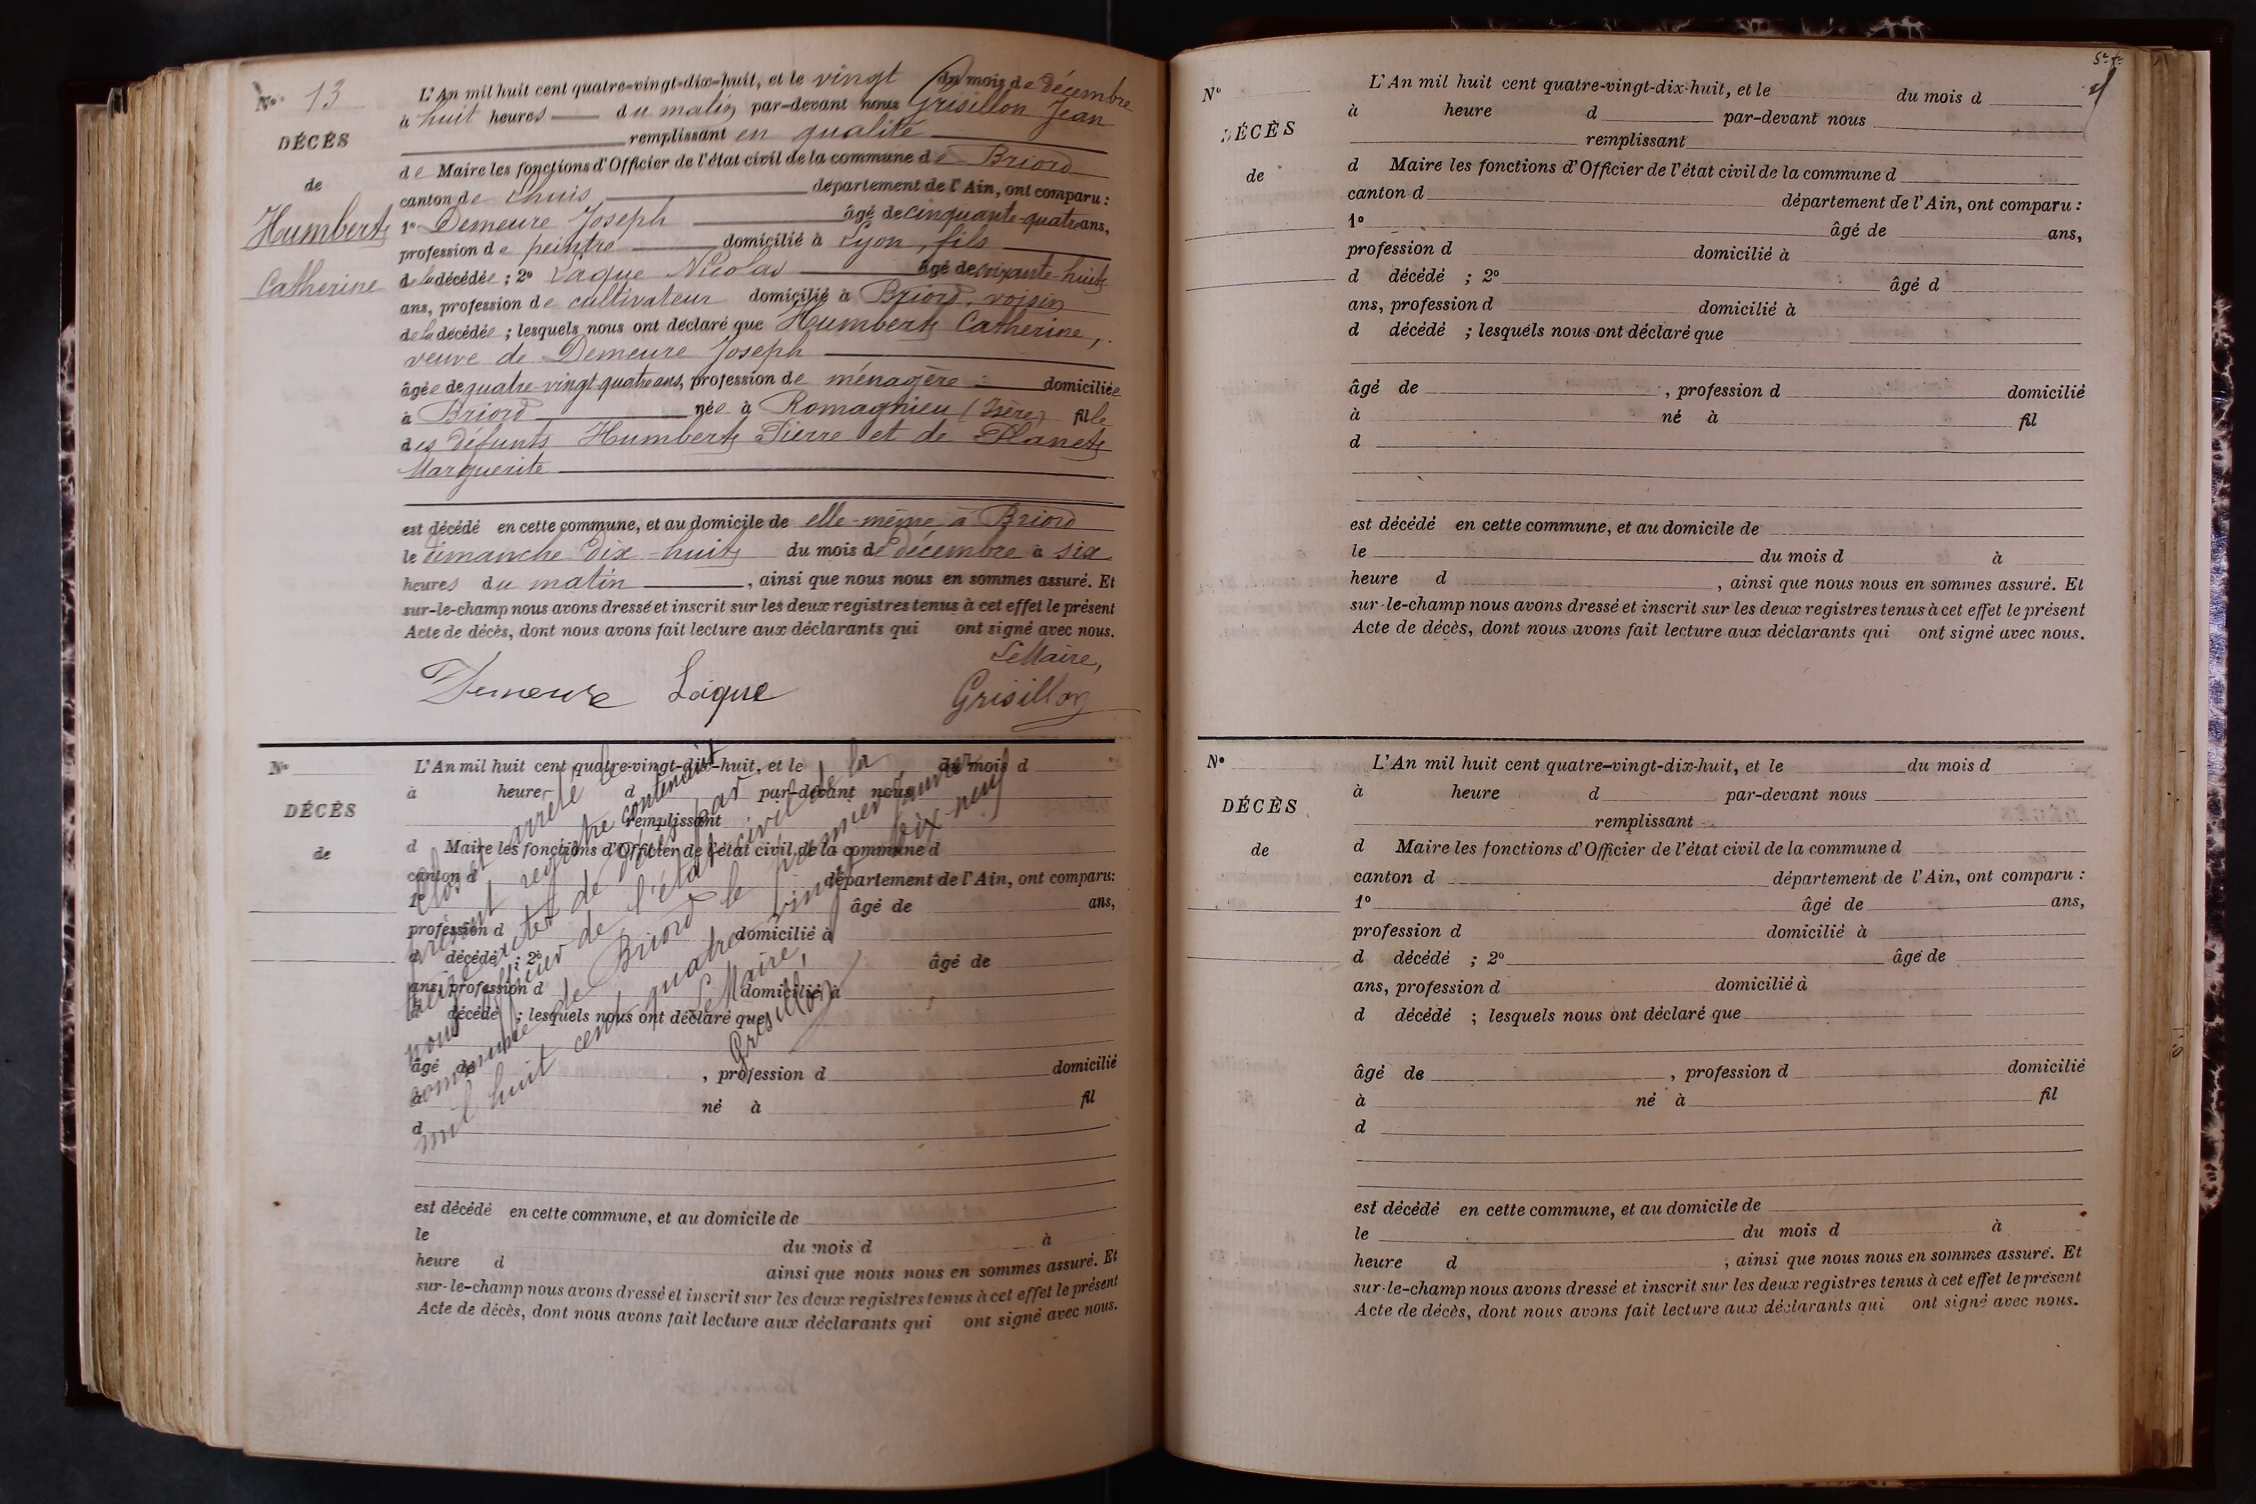 N° 13
DÉCÈS
de
Humbert
Catherine
L'An mil huit cent quatre-vingt-dix-huit, et le vingt du mois de Décembre
à huit heures du matin par-devant nous Grisillon Jean
remplissant en qualité
de Maire les fonctions d'Officier de l'état civil de la commune de Briord
canton de Lhuis, département de l'Ain, ont comparu :
1° Demeure Joseph âgé de cinquante-quatre ans,
profession de peintre domicilié à Lyon, fils
de la décédée ; 2° Laque Nicolas âgé de soixante-huit
ans, profession de cultivateur domicilié à Briord, voisin
de la décédée ; lesquels nous ont déclaré que Humbert Catherine,
veuve de Demeure Joseph
âgée de quatre-vingt-quatre ans, profession de ménagère domiciliée
à Briord née à Romagnieu (Isère) fille
des défunts Humbert Pierre et de Planet
Marguerite
est décédé en cette commune, et au domicile de elle-même à Briord
le dimanche dix-huit du mois de Décembre à six
heures du matin, ainsi que nous nous en sommes assuré. Et
sur-le-champ nous avons dressé et inscrit sur les deux registres tenus à cet effet le présent
Acte de décès, dont nous avons fait lecture aux déclarants qui ont signé avec nous.
Le Maire,
Demeure Laque Grisillon
N°
DÉCÈS
de
L'An mil huit cent quatre-vingt-dix-huit, et le du mois d
à heure d par-devant nous
remplissant
d Maire les fonctions d'Officier de l'état civil de la commune d
canton d département de l'Ain, ont comparu :
1° âgé de ans,
profession d domicilié à
d décédé ; 2° âgé de
ans, profession d domicilié à
d décédé ; lesquels nous ont déclaré que
âgé de , profession d domicilié
à né à fil
d
est décédé en cette commune, et au domicile de
le du mois d à
heure d ainsi que nous nous en sommes assuré. Et
sur-le-champ nous avons dressé et inscrit sur les deux registres tenus à cet effet le présent
Acte de décès, dont nous avons fait lecture aux déclarants qui ont signé avec nous.
Clos et arrêté le
présent registre contenant
treize actes de décès par
nous officier de l'état civil de la
commune de Briord le premier janvier
mil huit cent quatre vingt dix-neuf
Le Maire,
Grisillon
N°
DÉCÈS
de
L'An mil huit cent quatre-vingt-dix-huit, et le du mois d
à heure d par-devant nous
remplissant
d Maire les fonctions d'Officier de l'état civil de la commune d
canton d département de l'Ain, ont comparu :
1° âgé de ans,
profession d domicilié à
d décédé ; 2° âgé d
ans, profession d domicilié à
d décédé ; lesquels nous ont déclaré que
âgé de , profession d domicilié
à né à fil
d
est décédé en cette commune, et au domicile de
le du mois d à
heure d , ainsi que nous nous en sommes assuré. Et
sur-le-champ nous avons dressé et inscrit sur les deux registres tenus à cet effet le présent
Acte de décès, dont nous avons fait lecture aux déclarants qui ont signé avec nous.
N°
DÉCÈS
de
L'An mil huit cent quatre-vingt-dix-huit, et le du mois d
à heure d par-devant nous
remplissant
d Maire les fonctions d'Officier de l'état civil de la commune d
canton d département de l'Ain, ont comparu :
1° âgé de ans,
profession d domicilié à
d décédé ; 2° âgé de
ans, profession d domicilié à
d décédé ; lesquels nous ont déclaré que
âgé de , profession d domicilié
à né à fil
d
est décédé en cette commune, et au domicile de
le du mois d à
heure d , ainsi que nous nous en sommes assuré. Et
sur-le-champ nous avons dressé et inscrit sur les deux registres tenus à cet effet le présent
Acte de décès, dont nous avons fait lecture aux déclarants qui ont signé avec nous.